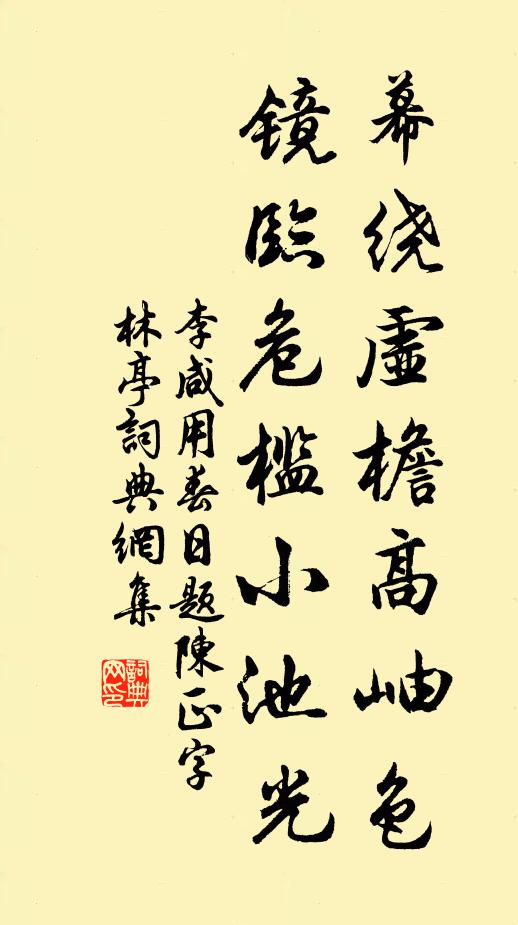 幕绕虚檐高岫色
镜临危槛小池光
李咸用春日题陳正字
林亭詞典網集
詞典网印